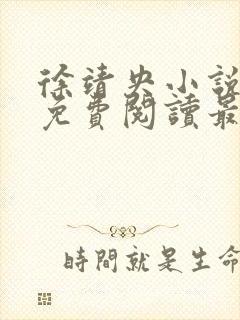 徐靖央小說
免費閱讀最
時間就是生命